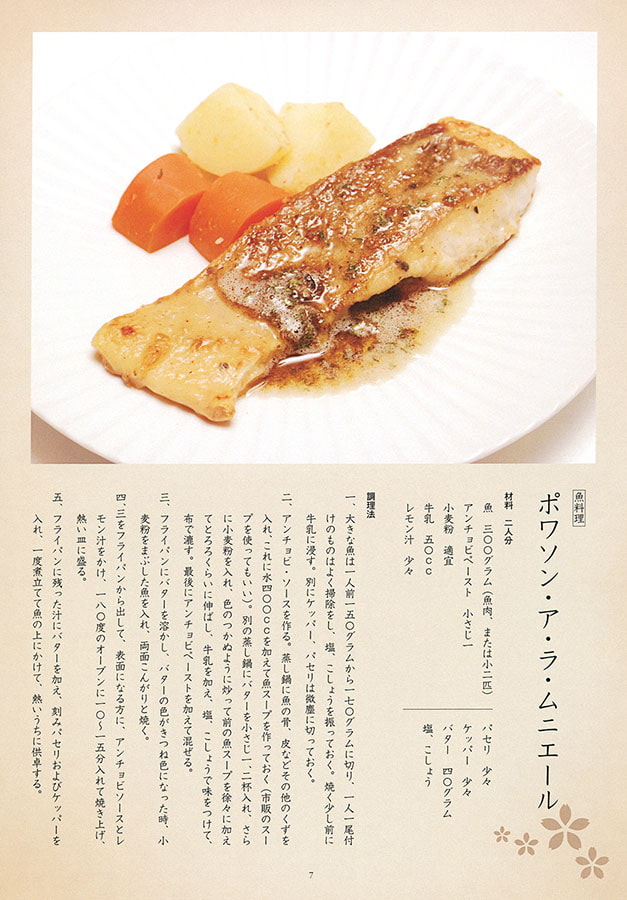 魚料理
ポワソン・ア・ラ・ムニエール
材料　二人分
魚　三〇〇グラム（魚肉、または小二匹）
アンチョビペースト　小さじ一
小麦粉　適宜
牛乳　五〇cc
レモン汁　少々
パセリ　少々
ケッパー　少々
バター　四〇グラム
塩、こしょう
調理法
一、大きな魚は一人前一五〇グラムから一七〇グラムに切り、一人一尾付
けのものはよく掃除をし、塩、こしょうを振っておく。焼く少し前に
牛乳に浸す。別にケッパー、パセリは微塵に切っておく。
二、アンチョビ・ソースを作る。蒸し鍋に魚の骨、皮などその他のくずを
入れ、これに水四〇〇ccを加えて魚スープを作っておく（市販のスー
プを使ってもいい）。別の蒸し鍋にバターを小さじ一、二杯入れ、さら
に小麦粉を入れ、色のつかぬように炒って前の魚スープを徐々に加え
てとろろくらいに伸ばし、牛乳を加え、塩、こしょうで味をつけて、
布で漉す。最後にアンチョビペーストを加えて混ぜる。
三、フライパンにバターを溶かし、バターの色がきつね色になった時、小
麦粉をまぶした魚を入れ、両面こんがりと焼く。
四、三をフライパンから出して、表面になる方に、アンチョビソースとレ
モン汁をかけ、一八〇度のオーブンに一〇〜一五分入れて焼き上げ、
熱い皿に盛る。
五、フライパンに残った汁にバターを加え、刻みパセリおよびケッパーを
入れ、一度煮立てて魚の上にかけて、熱いうちに供卓する。
7